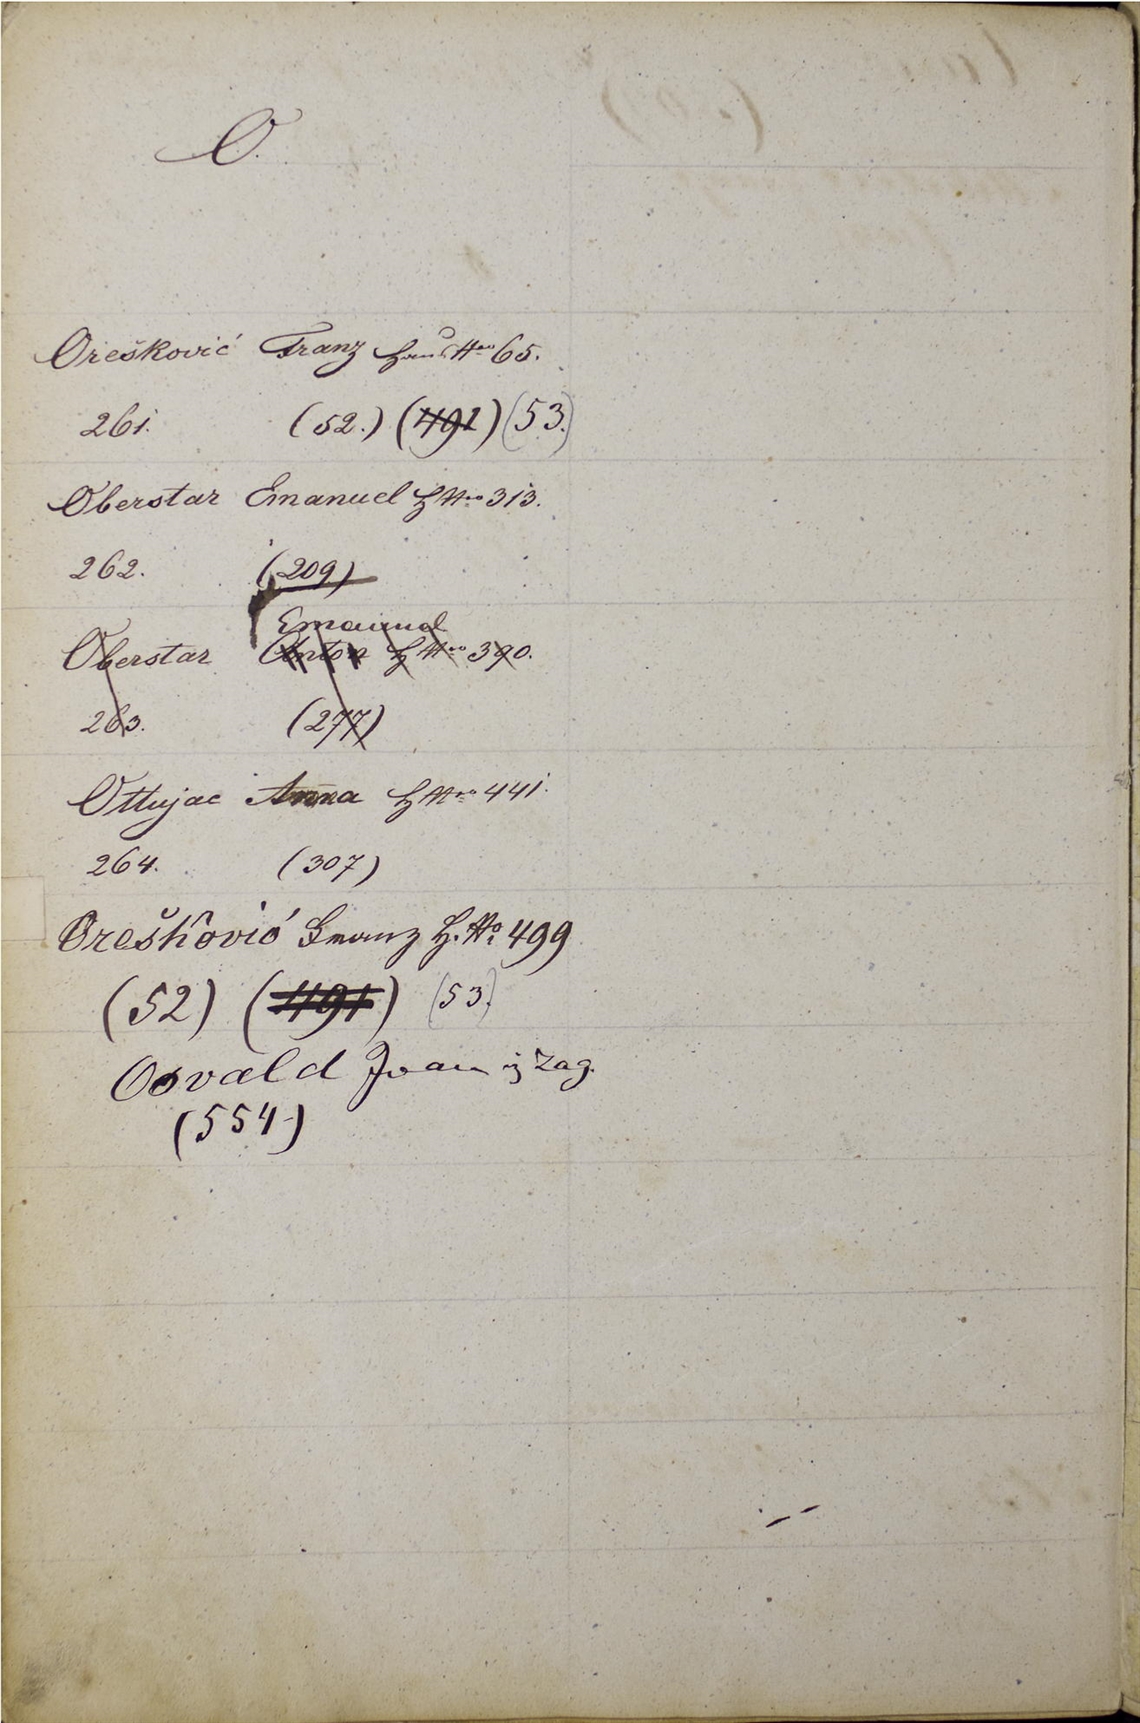 O.
Orešković Franz Haus Nro 65.
261. (52.) (491) (53.)
Oberstar Emanuel H Nro 313.
262. (209)
Emanuel
Oberstar Anton H Nro 390.
263. (277)
Ottujac Anna H Nro 441.
264. (307)
Orešković Franz H. No 499
(52) (491) (53.)
Osvald Ivan iz Zag.
(554)